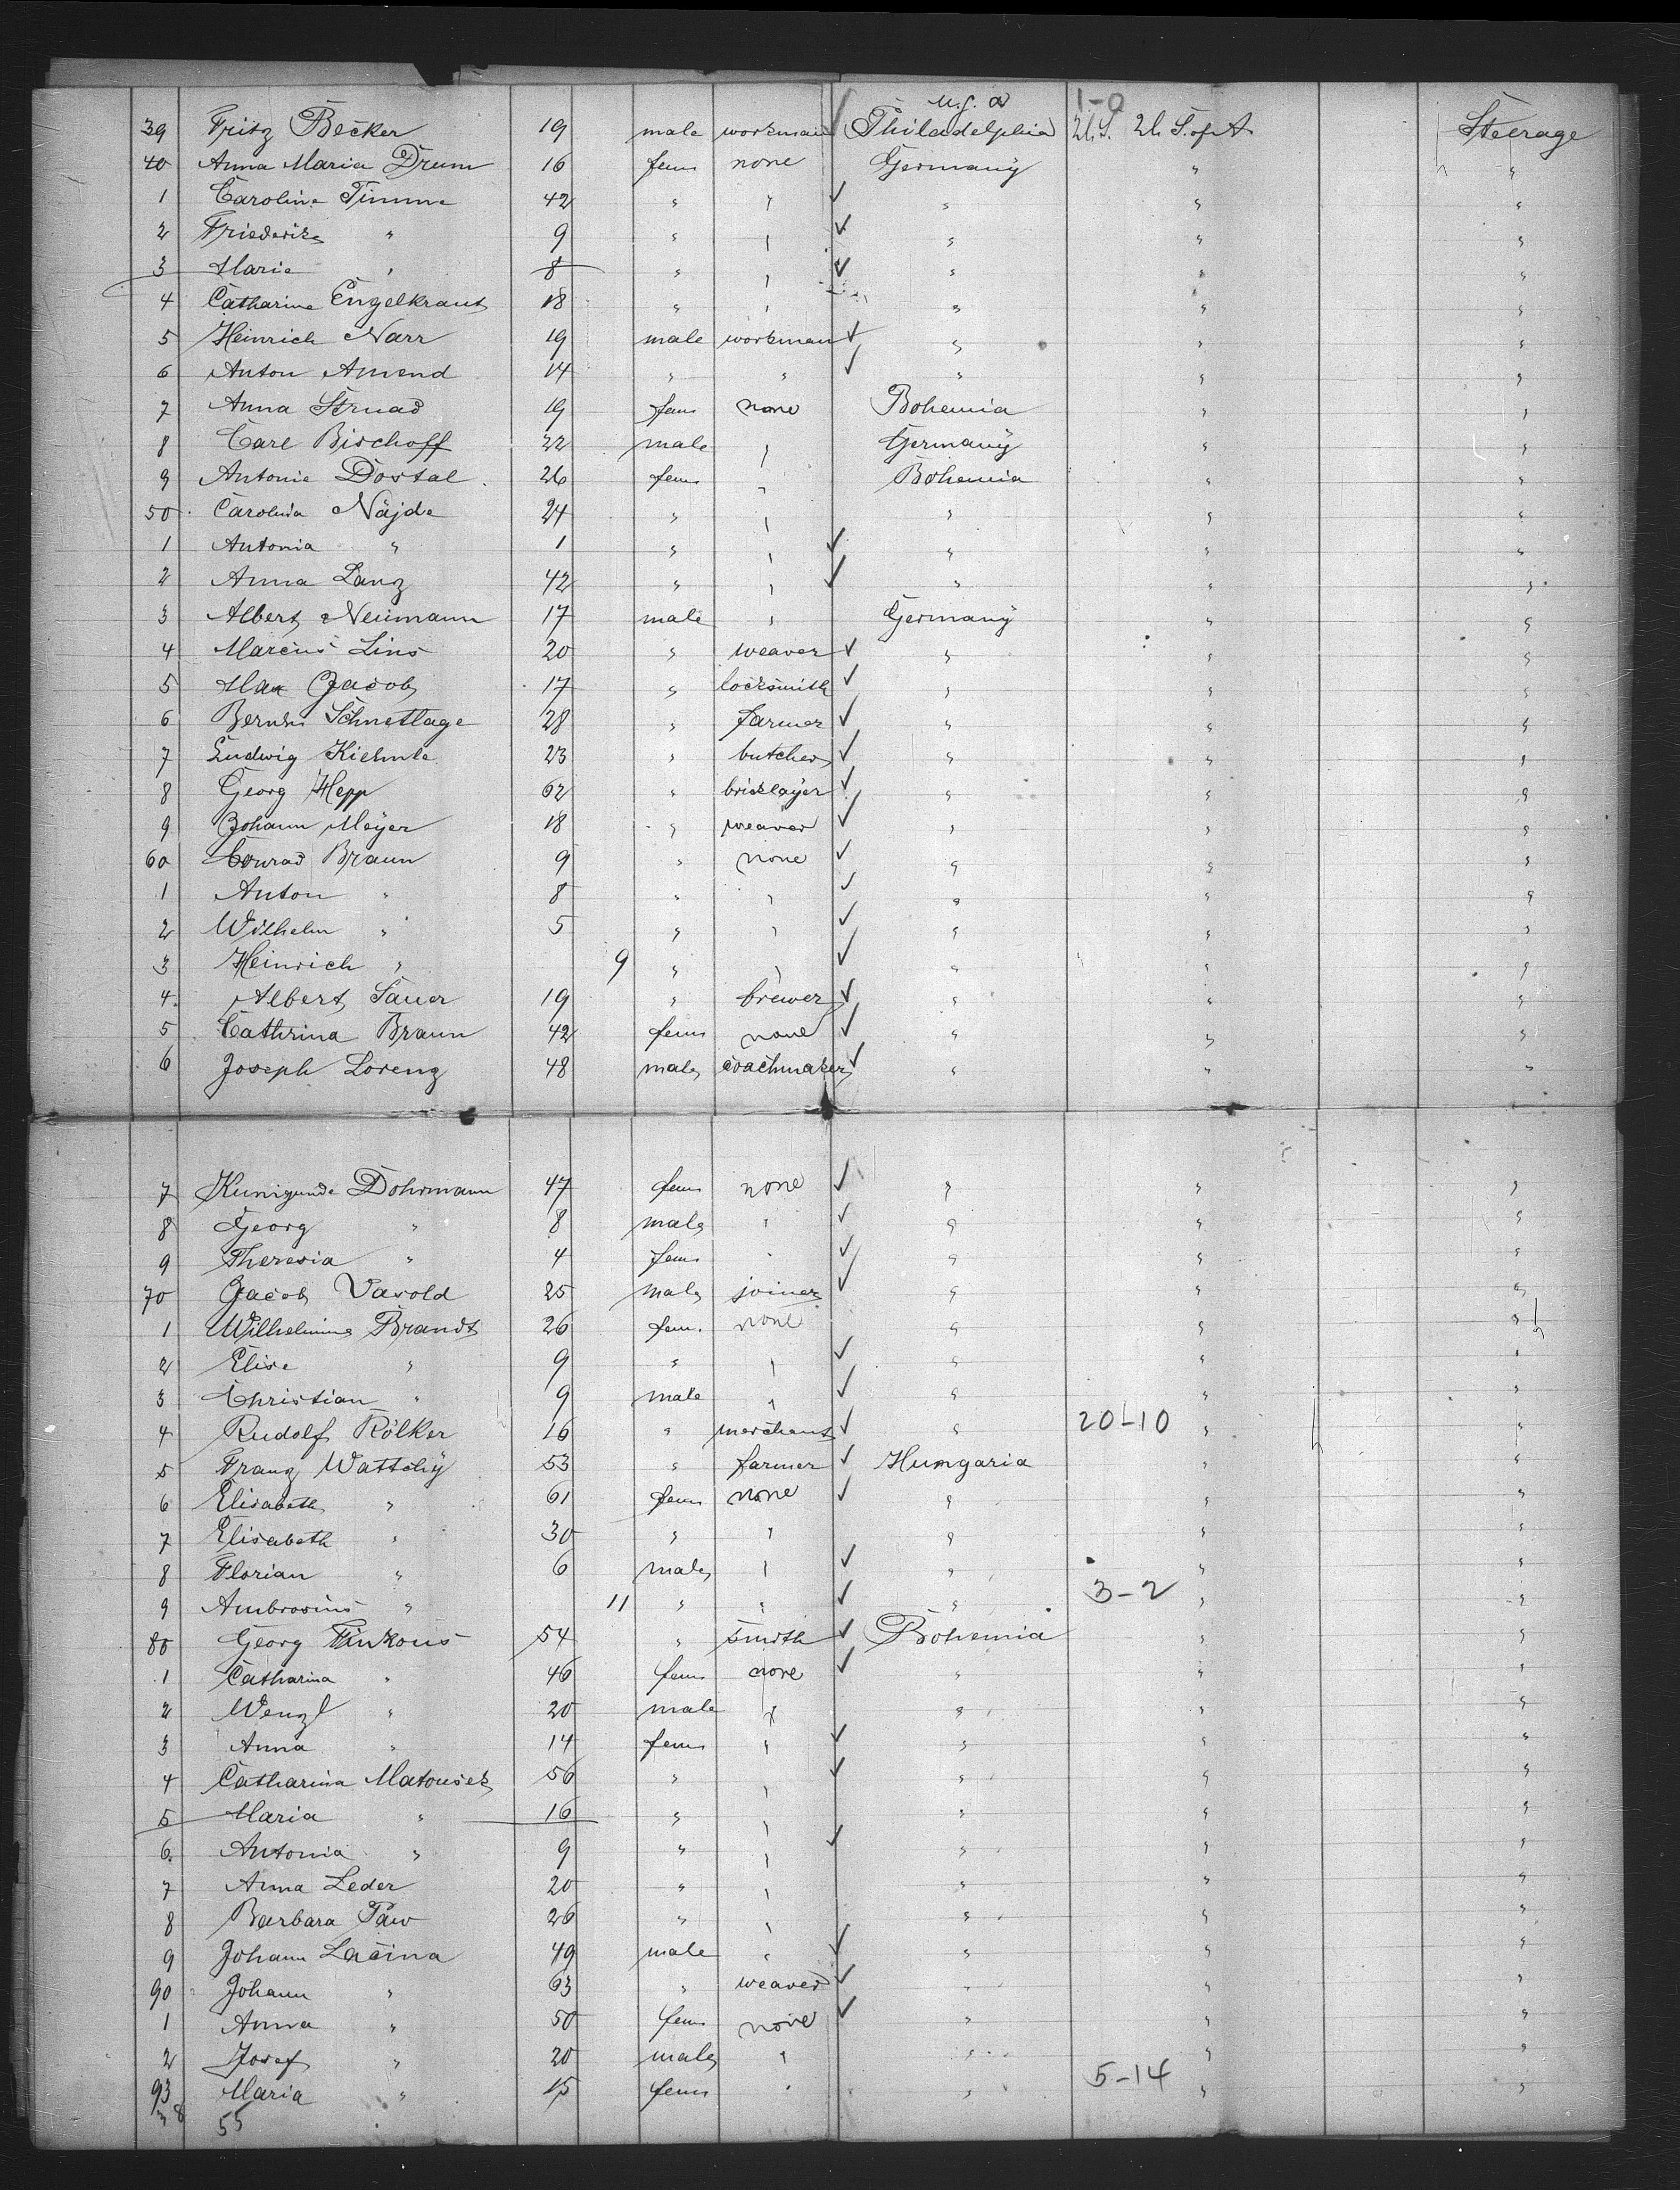 U.S. a 1-0
39 Fritz Becker 19 male workman Philadelphia U.S. U. S. of A Steerage
40 Anna Maria Drum 16 fem none Germany " "
1 Caroline Timme 42 " " ✓ " " "
2 Friederike " 9 " " ✓ " " "
3 Marie " 8 " " ✓ " " "
4 Catharine Engelkraut 18 " " " " "
5 Heinrich Narr 19 male workman ✓ " " "
6 Anton Amend 14 " " ✓ " " "
7 Anna Strnad 19 fem none Bohemia " "
8 Carl Bischoff 22 male " Germany " "
9 Antonie Dostal 26 fem " Bohemia " "
50 Carolina Najde 24 " " " " "
1 Antonia " 1 " " ✓ " " "
2 Anna Lang 42 " " ✓ " " "
3 Albert Neumann 17 male " Germany " "
4 Marcus Lins 20 " weaver ✓ " " "
5 Max Jacob 17 " locksmith ✓ " " "
6 Schnetlage 28 " farmer ✓ " " "
7 Ludwig Kiehnle 23 " butcher ✓ " " "
8 Georg Hepp 62 " bricklayer ✓ " " "
9 Johann Meyer 18 " weaver ✓ " " "
60 Conrad Braun 9 " none ✓ " " "
1 Anton " 8 " " ✓ " " "
2 Wilhelm " 5 " " ✓ " " "
3 Heinrich " 9 " " ✓ " " "
4. Albert Sauer 19 " brewer ✓ " " "
5 Cathrina Braun 42 fem none ✓ " " "
6 Joseph Lorenz 48 male coachmaker ✓ " " "
7 Kunigunde Dohrmann 47 fem none ✓ " " "
8 Georg " 8 male " ✓ " " "
9 Theresia " 4 fem " ✓ " " "
70 Jacob Vasold 25 male joiner ✓ " " "
1 Wilhelmine Brandt 26 fem. none " " "
2 Elise " 9 " " ✓ " " "
3 Christian " 9 male " ✓ " " "
4 Rudolf Rölker 16 " merchant ✓ " 20-10 " "
5 Franz Wattchy 53 " farmer ✓ Hungaria " "
6 Elisabeth " 61 fem none ✓ " " "
7 Elisabeth " 30 " " " " "
8 Florian " 6 male " ✓ " " "
9 Ambrosius " 11 " " ✓ " 3-2 " "
80 Georg 54 " smith ✓ Bohemia " "
1 Catharina " 46 fem none ✓ " " "
2 Wenzl " 20 male " " " "
3 Anna " 14 fem " ✓ " " "
4 Catharina Matousek 56 " " ✓ " " "
5 Maria " 16 " " " " "
6. Antonia " 9 " " ✓ " " "
7 Anna Leder 20 " " " " "
8 Barbara 26 " " " " "
9 Johann Lacina 49 male " ✓ " " "
90 Johann " 63 " weaver ✓ " " "
1 Anna " 50 fem none ✓ " " "
2 Josef " 20 male " " " "
93 Maria " 15 fem " " 5-14 " "
38 55